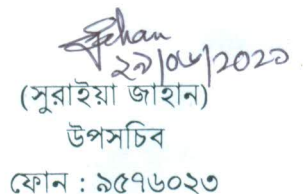 ২৯/০৬/২০২১
(সুরাইয়া জাহান)
উপসচিব
ফোন : ৯৫৭৬০২৩